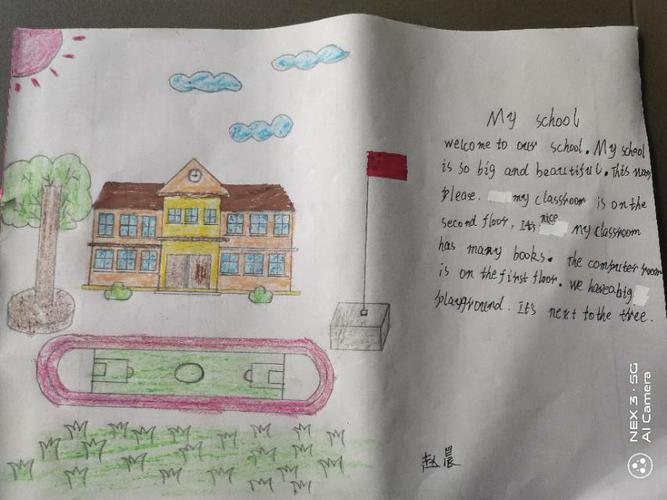 My school
welcome to our school. My school
is so big and beautiful. This way
please. my classroom is on the
second floor, It's nice my classroom
has many books. The computer room
is on the first floor. we have a big
playground. It's next to the tree.
赵晨
NEX 3·5G
AI Camera